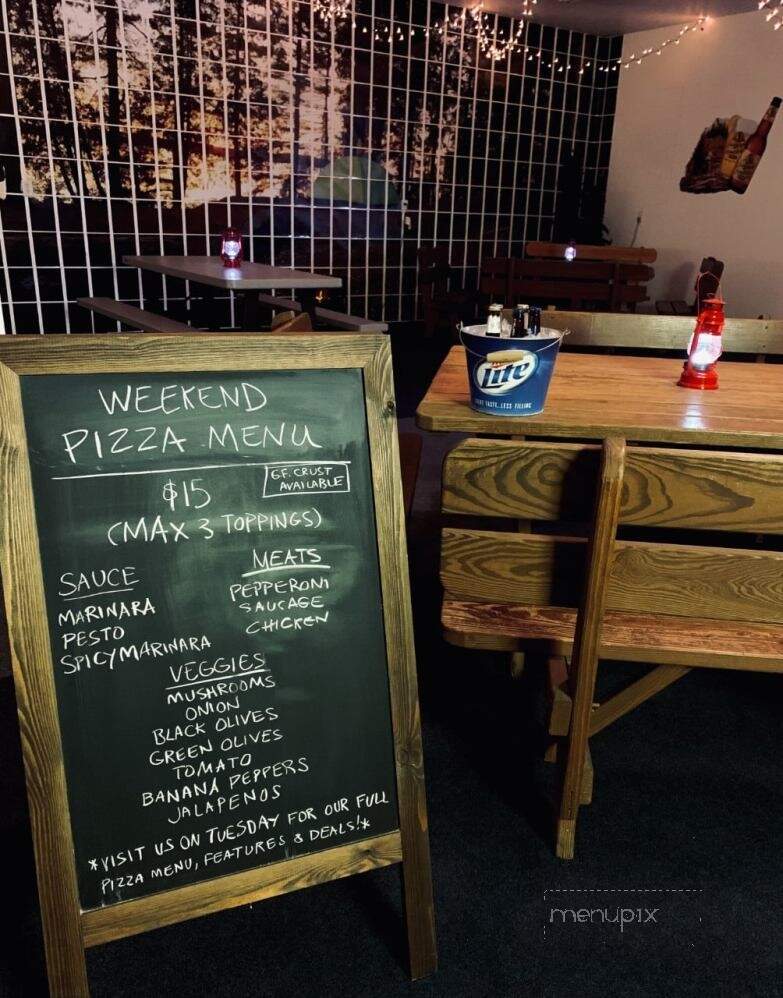 WEEKEND
PIZZA MENU
G.F. CRUST
AVAILABLE
$15
(MAX 3 TOPPINGS)
SAUCE
MARINARA
PESTO
SPICY MARINARA
MEATS
PEPPERONI
SAUCAGE
CHICKEN
VEGGIES
MUSHROOMS
ONION
BLACK OLIVES
GREEN OLIVES
TOMATO
BANANA PEPPERS
JALAPENOS
*VISIT US ON TUESDAY FOR OUR FULL
PIZZA MENU, FEATURES & DEALS!*
Lite
TASTE...LESS FILLING
menupix